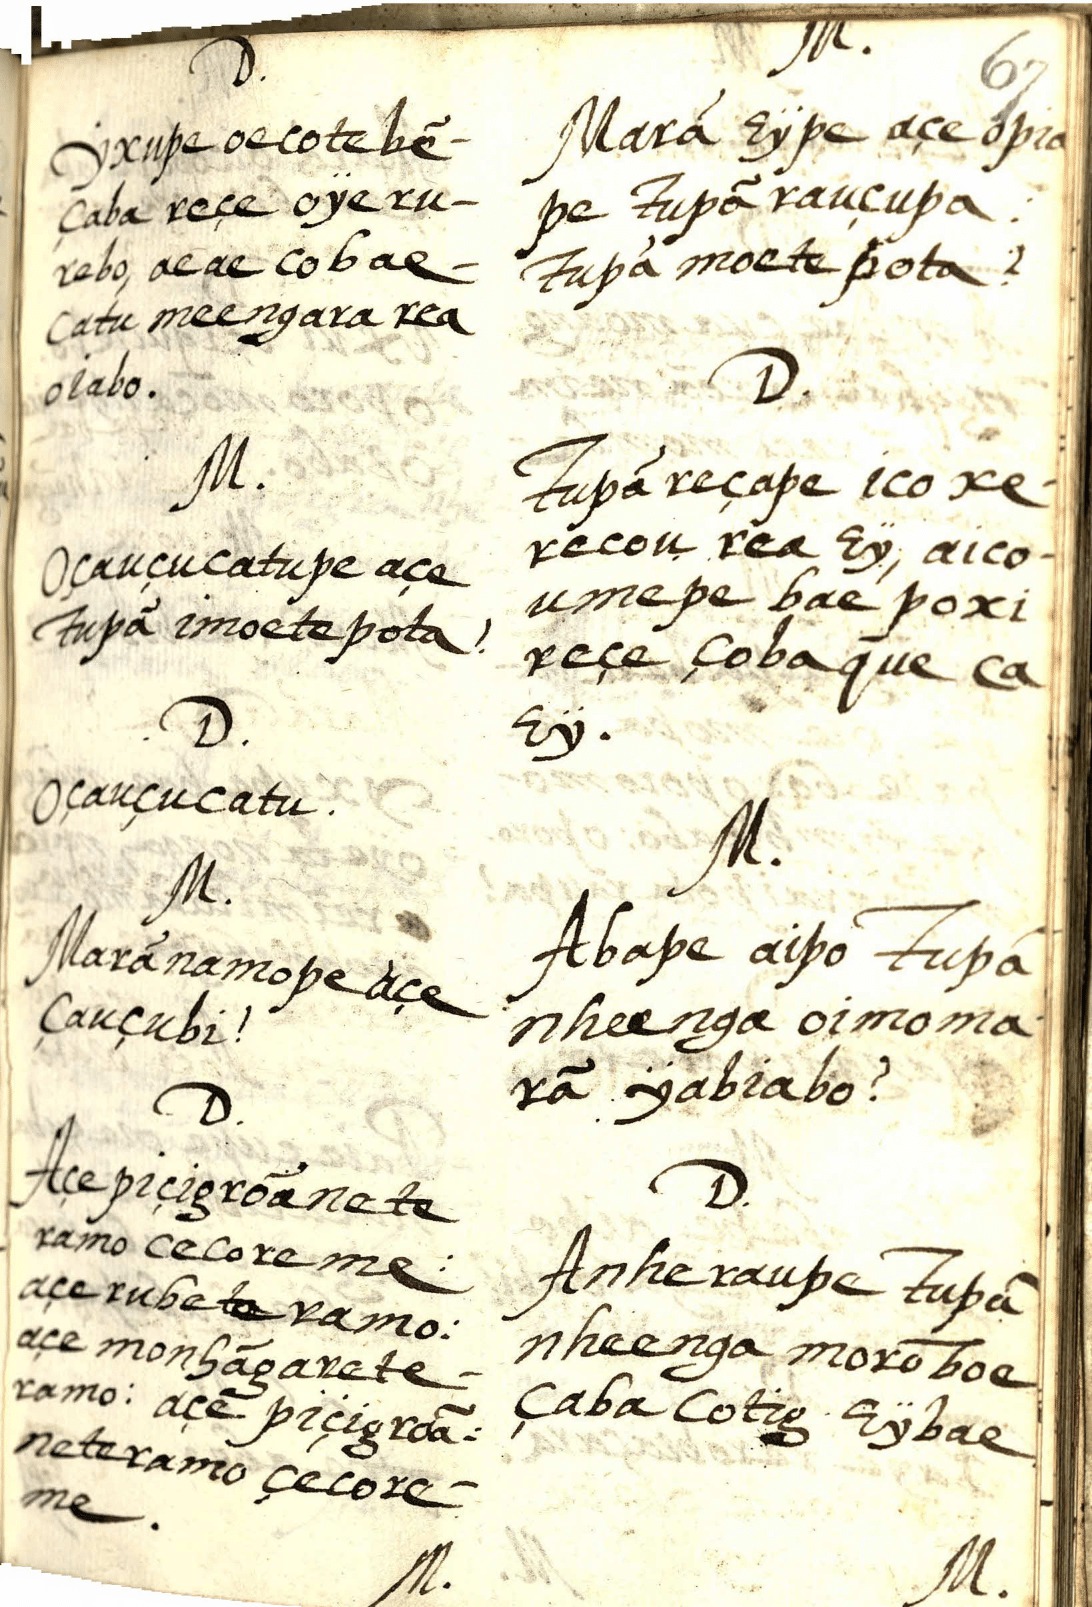 D.
Ӱxupe oecotebẽ-
çaba reçe oÿeru-
rebo, aeae cobae-
catu meengara rea
oiabo.
M.
Oçauçucatupe açe
tupã imoetepota!
D.
Oçauçucatu.
M.
Marãnamope açe
çauçubi!
D.
Açe piçigrõãnete
ramo cecoreme:
açe rubete ramo:
açe monhãgarete-
ramo: açẽ piçigrõã:
neteramo çecore-
me.
M.
M.
67
Marã Eÿpe açe opia
pe tupã rauçupa:
tupã moete pota?
D.
Tupã reçape ico xe-
recou rea Eÿ, aico-
umepe bae poxi
reçe çobaque ca
Eÿ.
M.
Abape aipo Tupã
nheenga oimoma
rã ÿabiabo?
D.
Anheraupe Tupã
nheenga morõboe
çaba cotig Eÿbae
M.